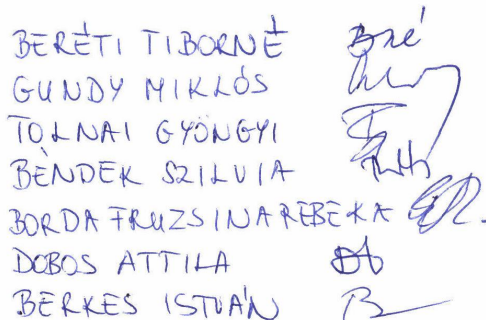 BERÉTI TIBORNÉ Bné
GUNDY MIKLÓS
TOLNAI GYÖNGYI
BENDEK SZILVIA
BORDA FRUZSINA REBEKA
DOBOS ATTILA
BERKES ISTVÁN